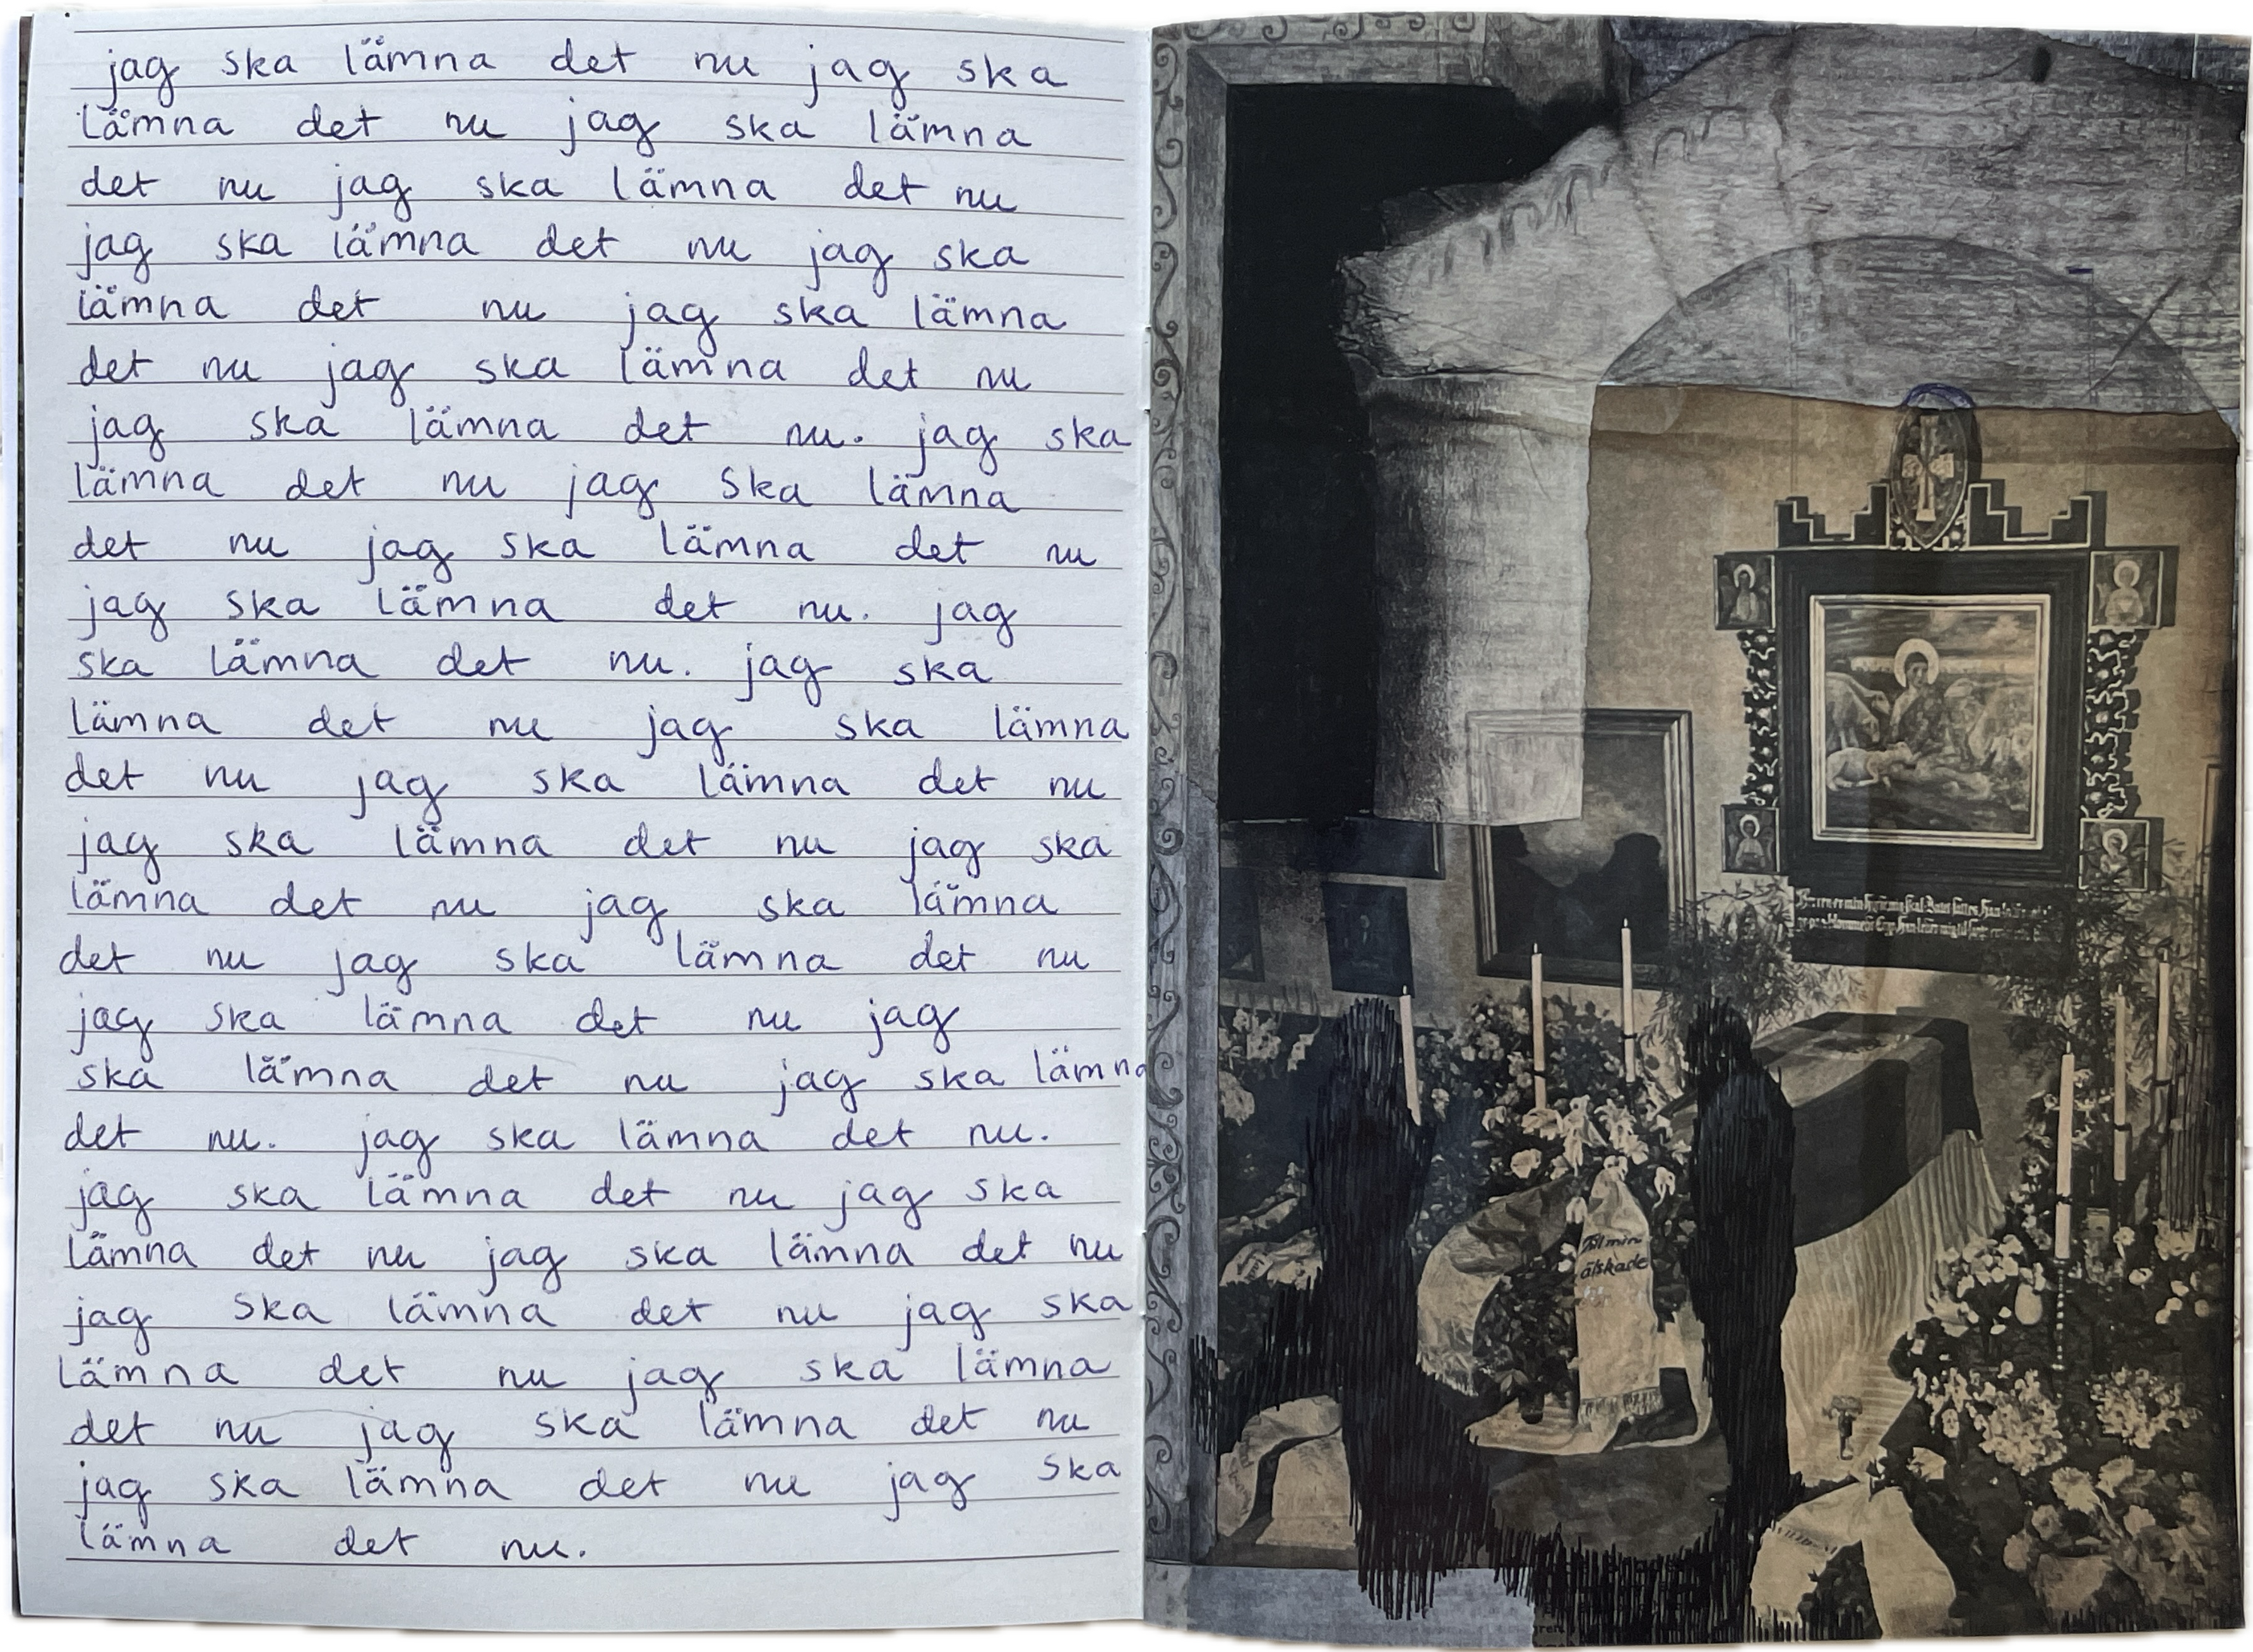 jag ska lämna det nu jag ska
lämna det nu jag ska lämna
det nu jag ska lämna det nu
jag ska lämna det nu jag ska
lämna det nu jag ska lämna
det nu jag ska lämna det nu
jag ska lämna det nu. jag ska
lämna det nu jag ska lämna
det nu jag ska lämna det nu
jag ska lämna det nu. jag
ska lämna det nu. jag ska
lämna det nu jag ska lämna
det nu jag ska lämna det nu
jag ska lämna det nu jag ska
lämna det nu jag ska lämna
det nu jag ska lämna det nu
jag ska lämna det nu jag
ska lämna det nu jag ska lämna
det nu. jag ska lämna det nu.
jag ska lämna det nu jag ska
lämna det nu jag ska lämna det nu
jag ska lämna det nu jag ska
lämna det nu jag ska lämna
det nu jag ska lämna det nu
jag ska lämna det nu jag ska
lämna det nu.
Till min
älskade